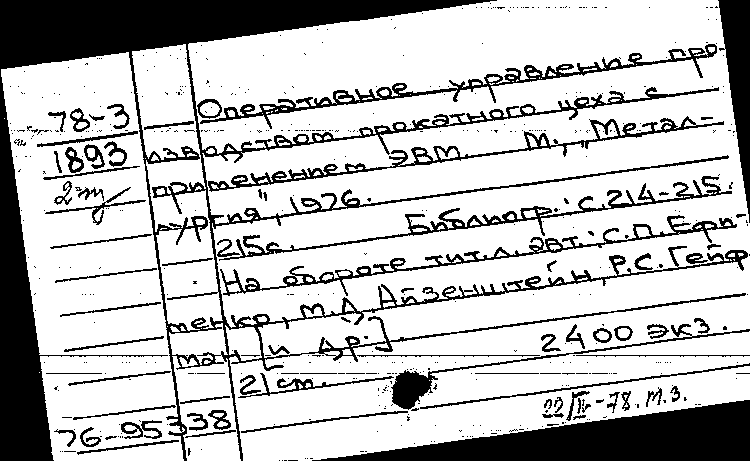 78-3
1893
2 т
Оперативное управление про-
изводством прокатного цеха с
применением ЭВМ. М., „Метал-
лургия", 1976.
215с. Библиогр.: с.214-215.
На обороте тит.л. авт.: С.П. Ефи-
менко, М.Д. Айзенштейн, Р.С. Гейф
ман [и др.].
21 см. 2400 экз.
76-95338
22/IV-78. М.З.